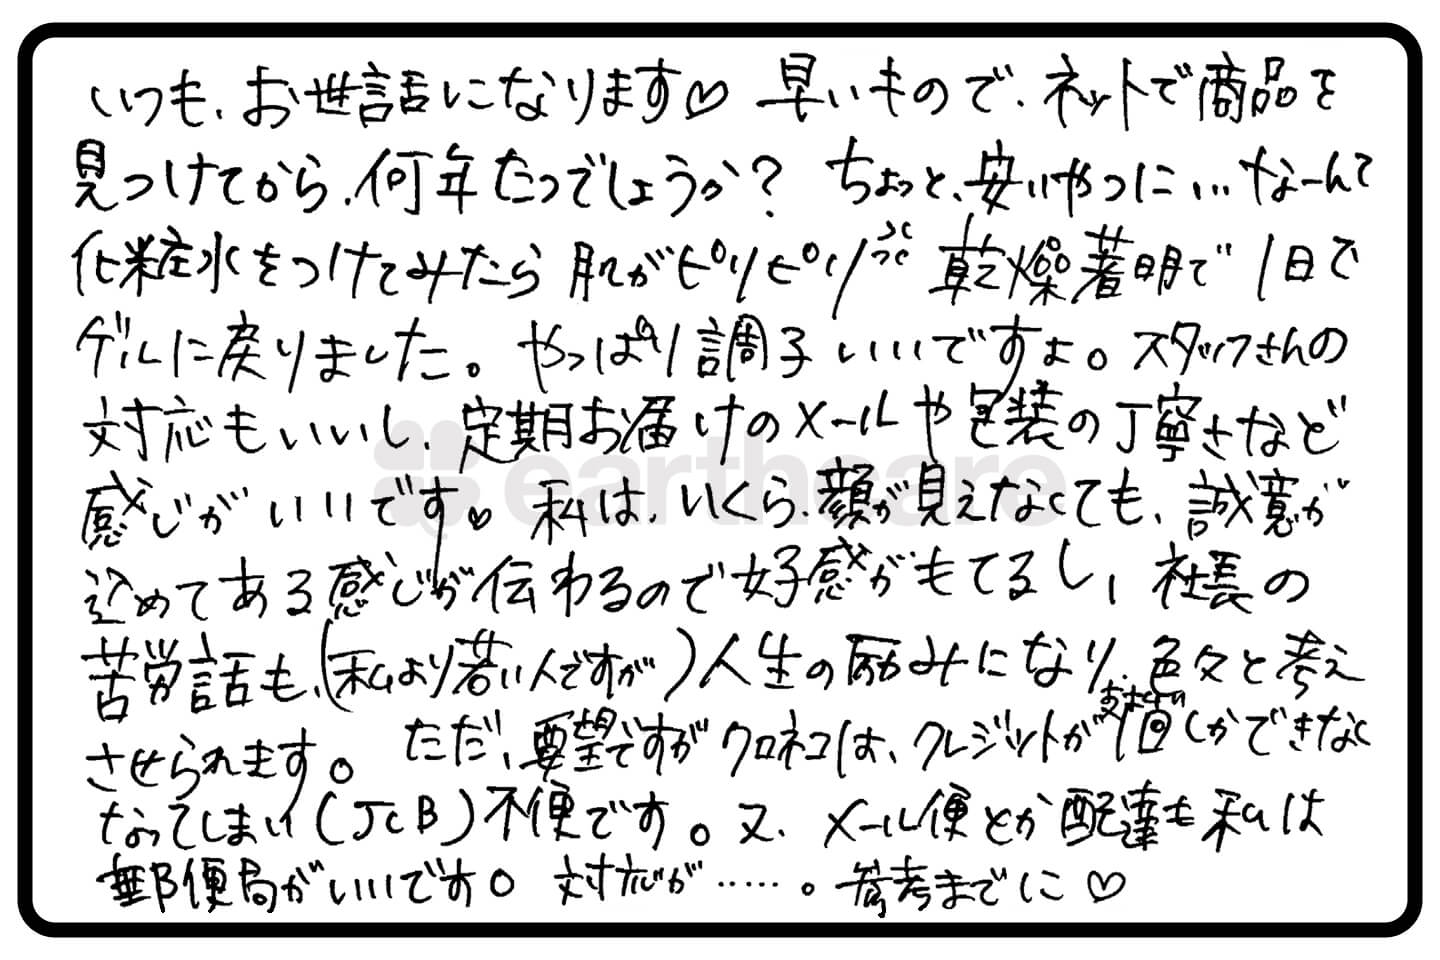 いつも、お世話になります♡ 早いもので、ネットで商品を
見つけてから、何年たつでしょうか? ちょっと、安いやつに… なーんて
化粧水をつけてみたら肌がピリピリ💢 乾燥著明で1日で
ゲルに戻りました。やっぱり調子いいですよ。スタッフさんの
対応もいいし、定期お届けのメールや包装の丁寧さなど
earthcare
感じがいいです♡ 私は、いくら、顔が見えなくても、誠意が
込めてある感じが伝わるので好感がもてるし、社長の
苦労話も、(私より若い人ですが)人生の励みになり、色々と考え
させられます。ただ、要望ですがクロネコは、クレジットが1回しかできなく
なってしまい(JCB)不便です。又、メール便とか配達も私は
郵便局がいいです。対応が……。参考までに♡